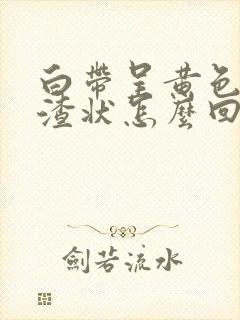 白帶呈黃色
渣状怎麽回
劍若流水